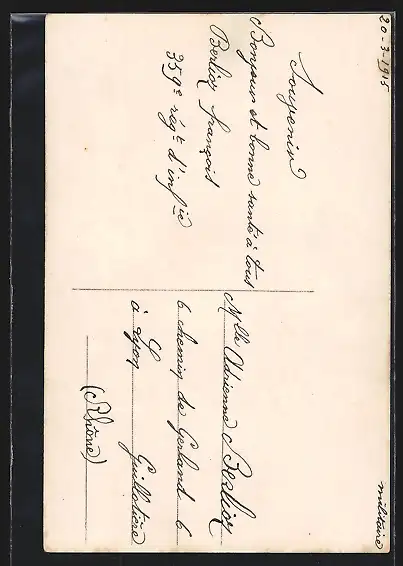 20-3-1915
Souvenir
Bonjour et bonne santé à tous
Berlioz françois
359e régt d'infie
Mlle Adrienne Berlioz
6 chemin de Gerland 6
à Lyon Guillotière
(Rhône)
militaire